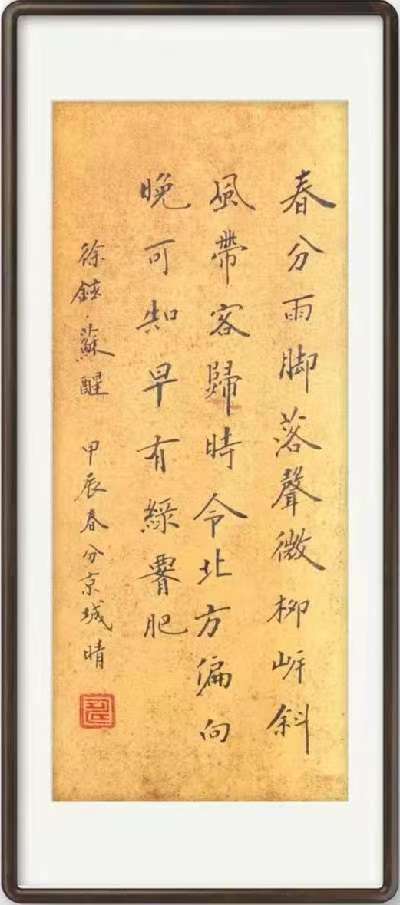 春分雨脚落聲微柳岸斜
風帶客歸時令北方偏向
晚可知早有綠腰肥
徐鉉·蘇醒 甲辰春分京城晴